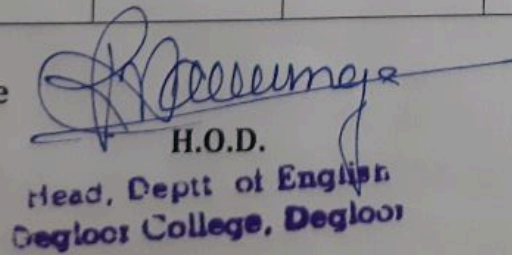 e
H.O.D.
Head, Deptt of English
Degloor College, Degloor